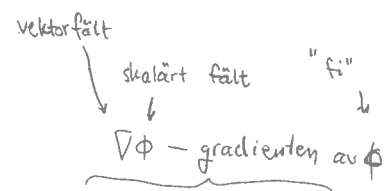 vektorfält
skalärt fält "fi"
∇Φ – gradienten av ϕ